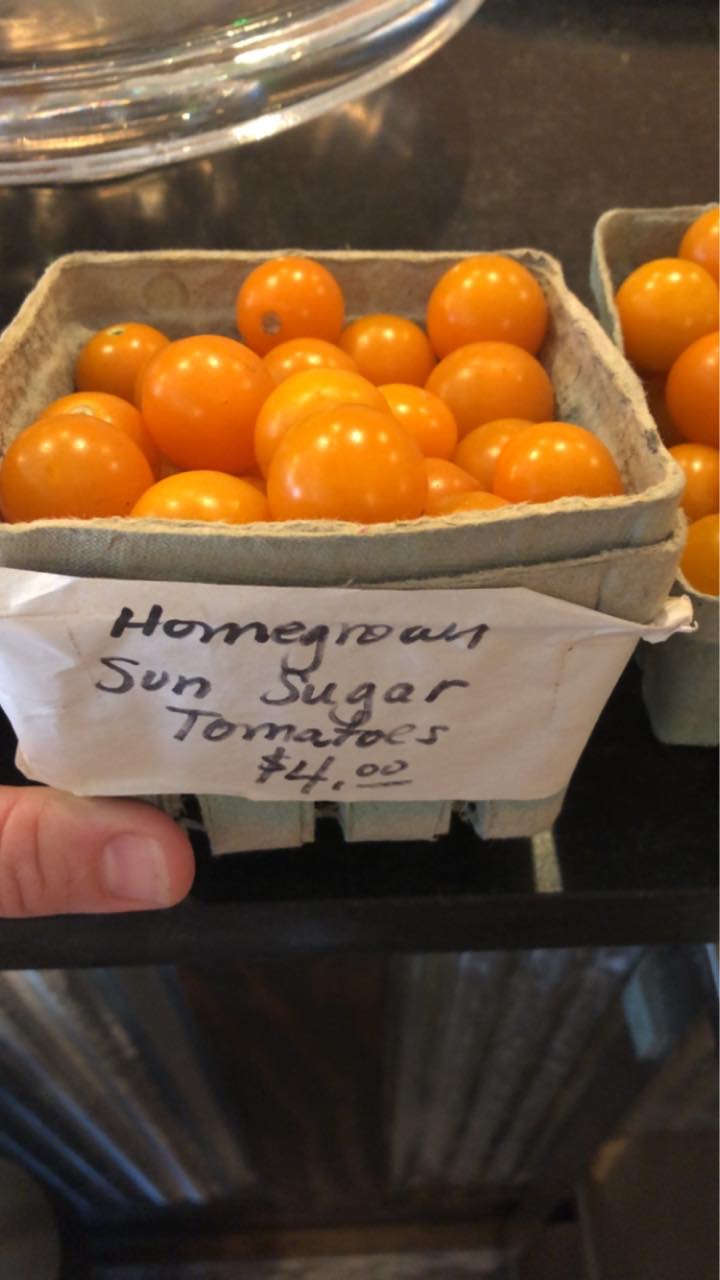 Homegrown
Sun Sugar
Tomatoes
$4.00